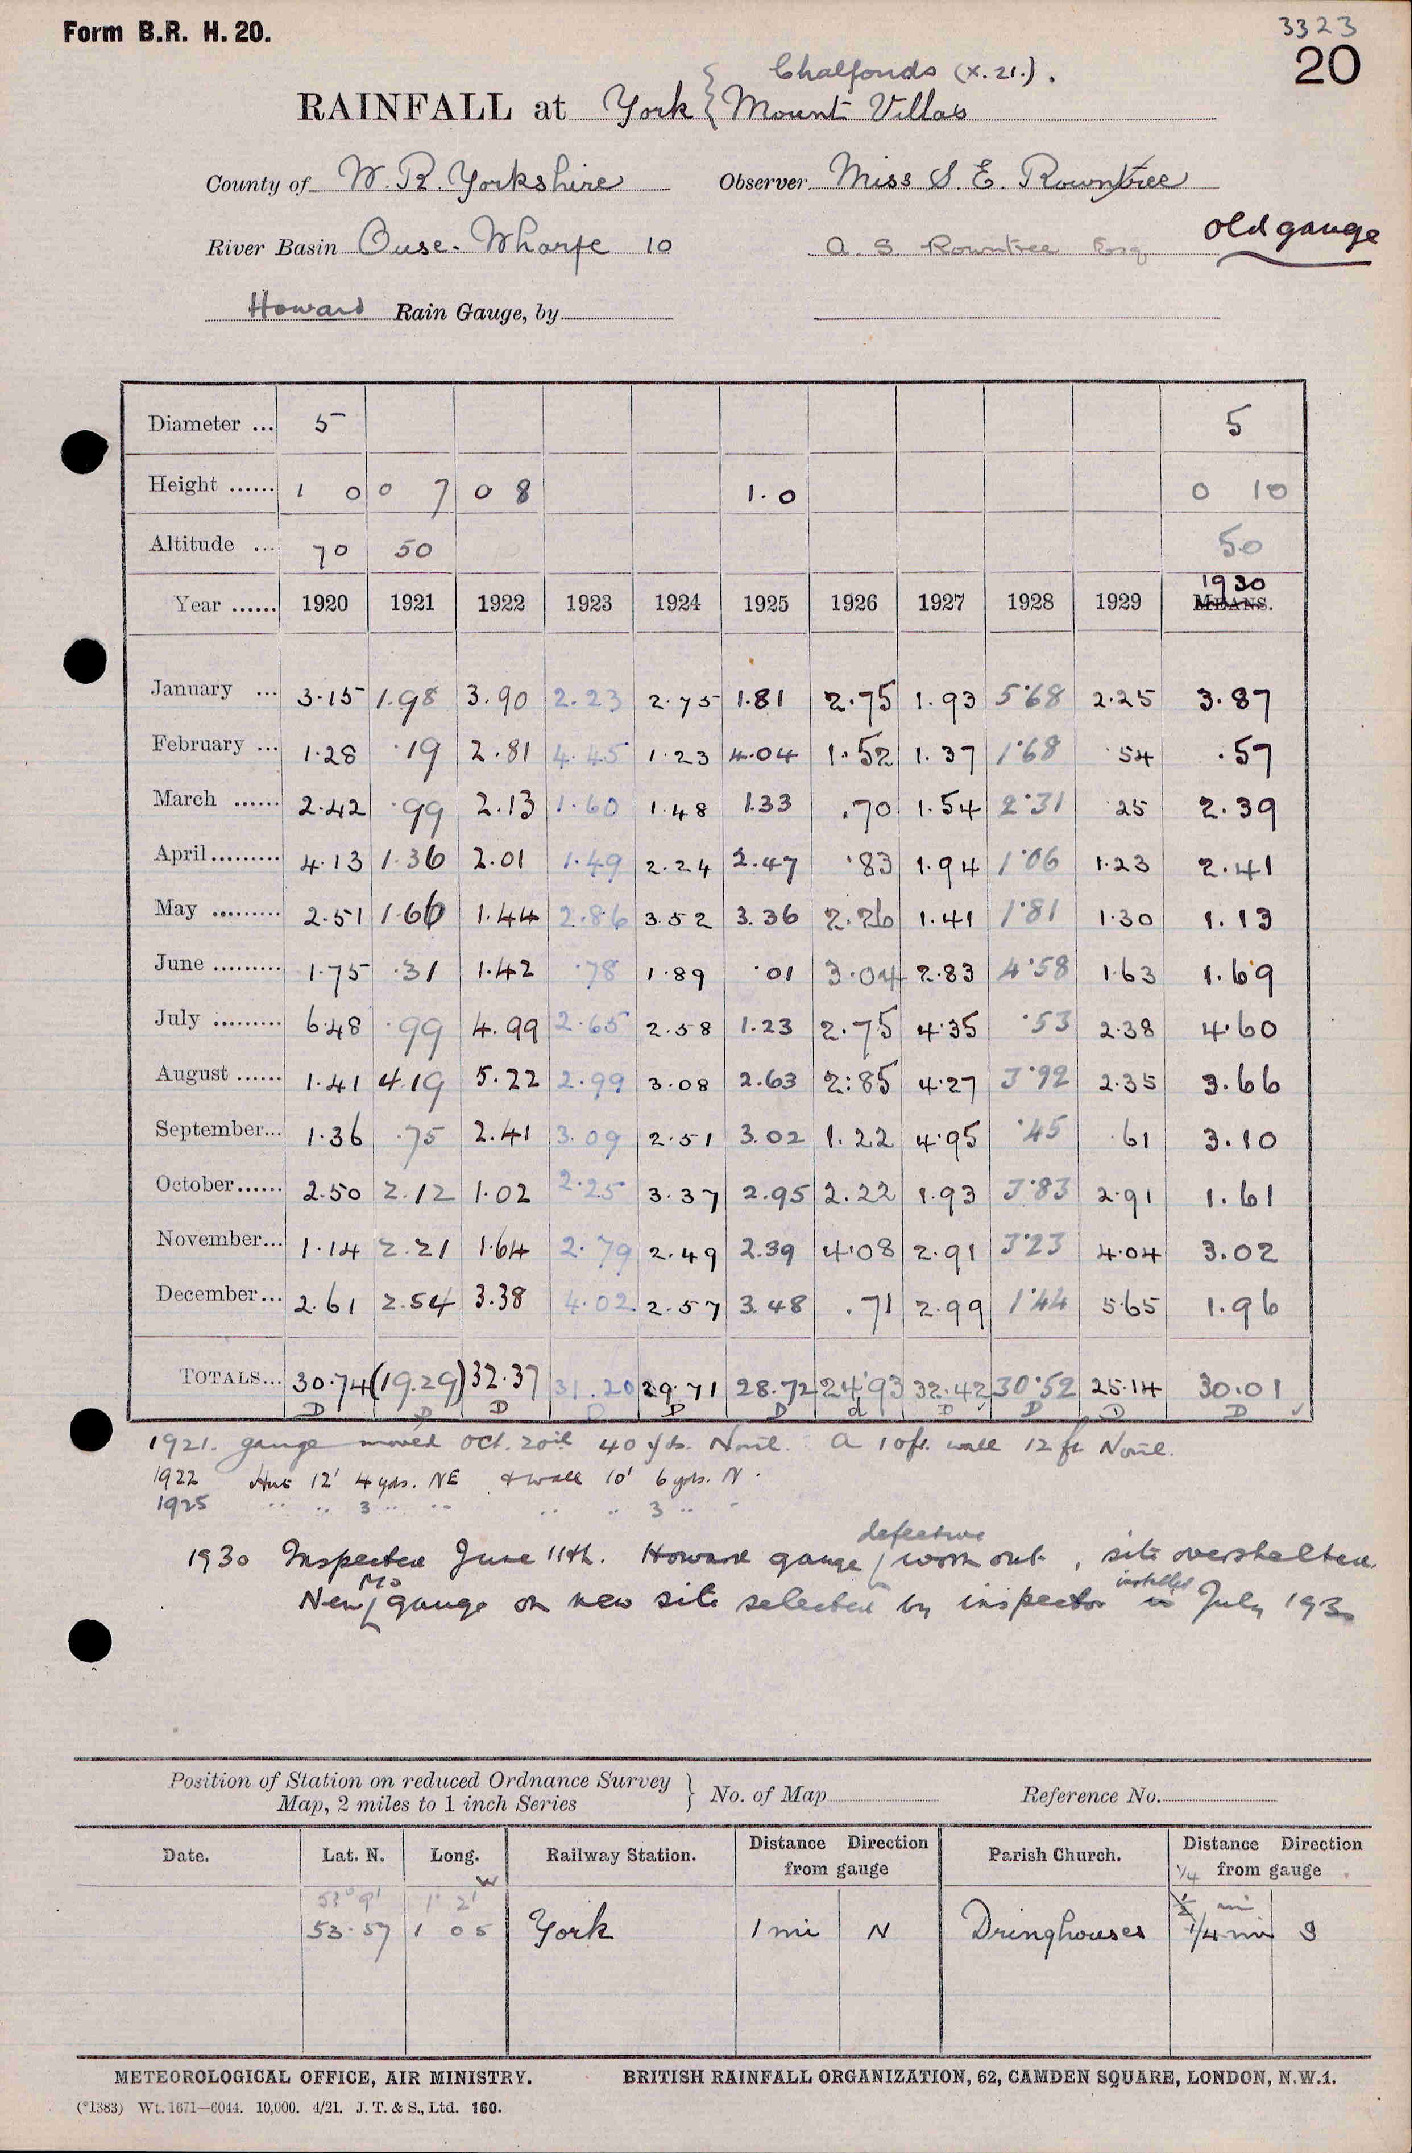 Form B.R. H. 20.
3323
20
Chalfonds (X. 21.).
RAINFALL at York { Mount Villas
County of W. R. Yorkshire Observer Miss S. E. Rowntree
River Basin Ouse - Wharfe 10 A. S. Rowntree Esq old gauge
Howard Rain Gauge, by
Diameter ... 5 5
Height ...... 1 0 0 7 0 8 1.0 0 10
Altitude ... 70 50 50
Year ...... 1920 1921 1922 1923 1924 1925 1926 1927 1928 1929 MEANS. 1930
January ... 3.15 1.98 3.90 2.23 2.75 1.81 2.75 1.93 5.68 2.25 3.87
February ... 1.28 .19 2.81 4.45 1.23 4.04 1.52 1.37 1.68 54 .57
March ...... 2.42 .99 2.13 1.60 1.48 1.33 .70 1.54 2.31 25 2.39
April......... 4.13 1.36 2.01 1.49 2.24 2.47 .83 1.94 1.06 1.23 2.41
May ......... 2.51 1.66 1.44 2.86 3.52 3.36 2.26 1.41 1.81 1.30 1.13
June ......... 1.75 .31 1.42 .78 1.89 .01 3.04 2.83 4.58 1.63 1.69
July ......... 6.48 .99 4.99 2.65 2.58 1.23 2.75 4.35 .53 2.38 4.60
August ...... 1.41 4.19 5.22 2.99 3.08 2.63 2.85 4.27 3.92 2.35 3.66
September... 1.36 .75 2.41 3.09 2.51 3.02 1.22 4.95 .45 .61 3.10
October...... 2.50 2.12 1.02 2.25 3.37 2.95 2.22 1.93 3.83 2.91 1.61
November... 1.14 2.21 1.64 2.79 2.49 2.39 4.08 2.91 3.23 4.04 3.02
December... 2.61 2.54 3.38 4.02 2.57 3.48 .71 2.99 1.44 5.65 1.96
TOTALS... 30.74 (19.29) 32.37 31.20 29.71 28.72 24.93 32.42 30.52 25.14 30.01
D D D D D D d D D D D
1921. gauge moved Oct. 20th 40 yds. North. A 10ft. wall 12 ft North.
1922 Hut 12' 4 yds. NE & wall 10' 6 yds. N.
1925 " " 3 " " " " 3 " "
1930 Inspected June 11th. Howard gauge defective / worn out, site oversheltered.
New MO gauge on new site selected by inspector installed in July 1930
Position of Station on reduced Ordnance Survey
Map, 2 miles to 1 inch Series } No. of Map Reference No.
Date. Lat. N. Long. W Railway Station. Distance Direction from gauge Parish Church. Distance Direction from gauge
1/4
53° 9' 1° 2' 1/2 mi
53.57 1 05 York 1 mi N Dringhouses 1/4 mi S
METEOROLOGICAL OFFICE, AIR MINISTRY. BRITISH RAINFALL ORGANIZATION, 62, CAMDEN SQUARE, LONDON, N.W.1.
(*1383) Wt. 1671—6044. 10,000. 4/21. J. T. & S., Ltd. 160.